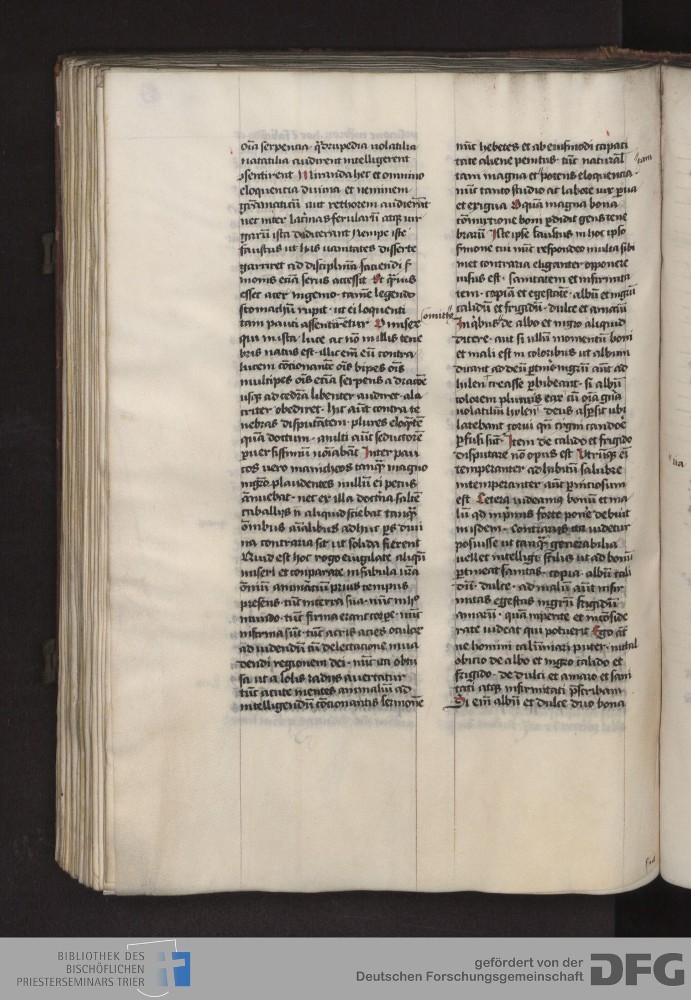 oīa serpencia qͣdrupedia uolatilia
natatilia audirent intelligerent
⁊sentirent Miranda hec et omnino
eloquencia diuina et neminem
gramaticū aut rethorem audierāt
nec inter latinas ferularū atqꝫ uir
garū ista didicerant Nempe iste
faustus ut has uanitates disserte
garriret ad disciplinā faciendi ẜ
monis eciā serus accessit Et qͣuis
esset acer ingenio tamē legendo
stomachū rupit ut ei loquenti
tam pauci assentirētur O misere
qui in ista luce ac nō in illis tene
bris natus est illic eīm eū contra
lucem cōcionantē oīs bipes oīs
multipes oīs eciā serpens a dracōe
usqꝫ ad cocleā libenter audiret ala
criter obediret hic aūt contra te
nebras disputātem plures eloqͣntē
quā doctum multi aūt seductorē
ꝑuersissimū nōīabāt Inter pau
cos uero manicheos tanqͣ magno
mgr̄o plaudentes nullū ei pecus
ānuebat nec ex illa doctrīa saltē
caballus n̄ aliquid sciebat tanqͣ
ōmibus aīalibus adhuc ps diui
na contraria sit ut solida fierent
Quid est hoc rogo euigilate aliqn̄
miseri et conparate in fabula ur̄a
ōmiū animanciū prius tempus
presens tūc in terra sua nūc in hͦ
mundo tūc firma erant corpͣe nūc
infirma sūt tūc acris acies oculoꝝ
ad uidendū cū delectacione inua
dendi regionem dei nūc ita obtu
sa ut a solis radijs auertatur
tūc acute mentes animaliū ad
intelligendū cōcionantis sermonē
nūc hebetes et ab eiusmodi capaci
tate aliene penitus tūc naturāl
tam
tam magna et potens eloquencia
nūc tanto studio ac labore uix ꝑua
et exigua O quā magna bona
cōmixtione boni ꝑdidit gens tene
brarū Iste ipse faustus in hoc ipso
ẜmone cui nūc respondeo multa sibi
met contraria eliganter opponere
uisus est sanitatem et infirmita
tem copiā et egestatē albū et nigrū
calidū et frigidū dulce et amarū
In qͥbus de albo et nigro aliquid
dicere aut si ullū momentū boni
et mali est in coloribus ut album
dicant ad deū ꝑtinē nigrū aūt ad
hilen
colorem
uolatiliū hilen deus asꝑsit ubi
latebant corui qn̄ cigni candoē
ꝑfusi sūt Item de calido et frigido
disputare nō opus est Utrūqꝫ eī
temperanter adhibitū salubre
intemperanter aūt ꝑniciosum
est Cetera uideamus bonū et ma
lū ad in primis forte ponē debuit
in isdem contrarijs ita uidetur
posuisse ut tanqͣ generabilia
uellet intelligi sc̄ilis ut ad bonū
ꝑtineat sanitas copia albū cali
dū dulce ad malū aūt infir
mitas egestas nigrū frigidū
amarū quā inperite et incōside
rate uideat qui potuerit Ego aūt
ne homini calūniari puter nichil
obicio de albo et nigro calido et
frigido de dulci et amaro et sani
tati atqꝫ infirmitati p̄scribam
Si eīm albū et dulce duo bona
BIBLIOTHEK DES
BISCHÖFLICHEN
PRIESTERSEMINARS TRIER
gefördert von der
Deutschen Forschungsgemeinschaft
DFG